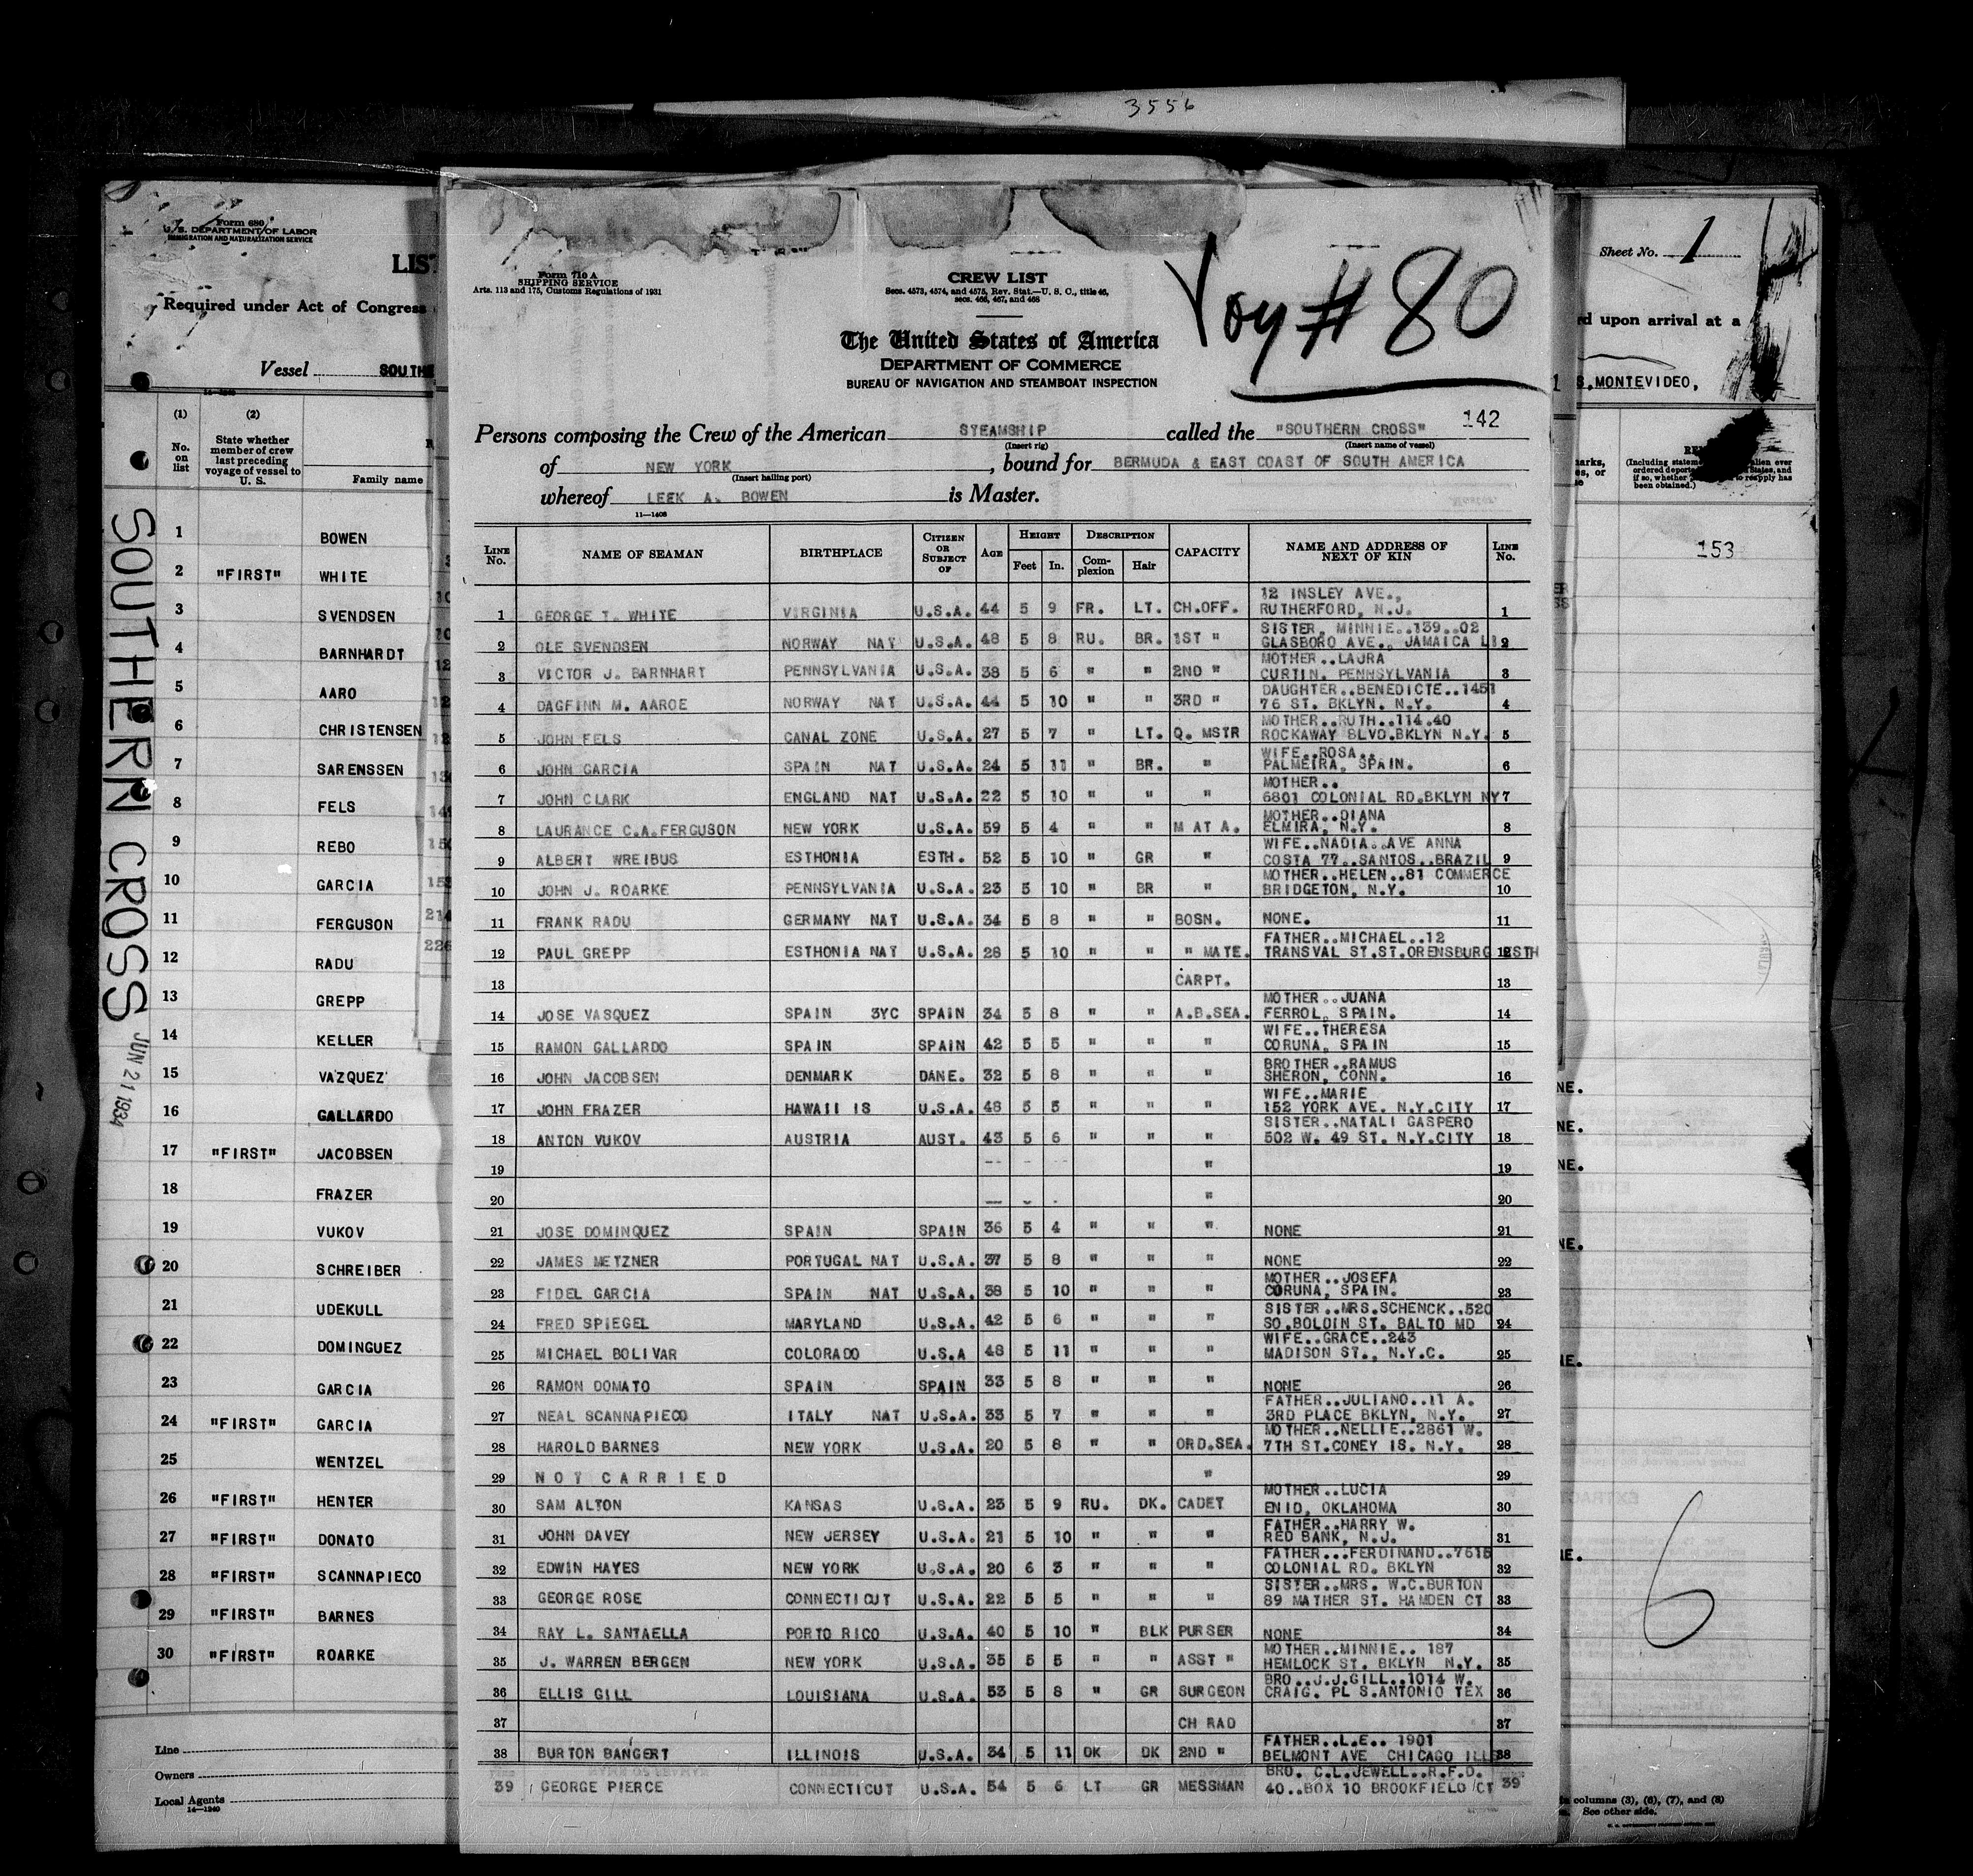 3556
Form 680
U. S. DEPARTMENT OF LABOR
IMMIGRATION AND NATURALIZATION SERVICE
LIST
Required under Act of Congress
Vessel SOUTHE
(1) (2)
No. on list
State whether member of crew last preceding voyage of vessel to U. S.
Family name
1 BOWEN
2 "FIRST" WHITE
3 SVENDSEN
4 BARNHARDT
5 AARO
6 CHRISTENSEN
7 SARENSSEN
8 FELS
9 REBO
10 GARCIA
11 FERGUSON
12 RADU
13 GREPP
14 KELLER
15 VAZQUEZ
16 GALLARDO
17 "FIRST" JACOBSEN
18 FRAZER
19 VUKOV
20 SCHREIBER
21 UDEKULL
22 DOMINGUEZ
23 GARCIA
24 "FIRST" GARCIA
25 WENTZEL
26 "FIRST" HENTER
27 "FIRST" DONATO
28 "FIRST" SCANNAPIECO
29 "FIRST" BARNES
30 "FIRST" ROARKE
Line
Owners
Local Agents
14—1240
SOUTHERN CROSS JUN 21 1934
Form 710 A
SHIPPING SERVICE
Arts. 113 and 175, Customs Regulations of 1931
CREW LIST
Secs. 4573, 4574, and 4575, Rev. Stat.—U. S. C., title 46,
secs. 466, 467, and 468
Voy # 80
The United States of America
DEPARTMENT OF COMMERCE
BUREAU OF NAVIGATION AND STEAMBOAT INSPECTION
142
Persons composing the Crew of the American STEAMSHIP called the "SOUTHERN CROSS"
(Insert rig) (Insert name of vessel)
of NEW YORK, bound for BERMUDA & EAST COAST OF SOUTH AMERICA
(Insert hailing port)
whereof LEEK A. BOWEN is Master.
11—1408
LINE No. NAME OF SEAMAN BIRTHPLACE CITIZEN OR SUBJECT OF AGE HEIGHT Feet In. DESCRIPTION Complexion Hair CAPACITY NAME AND ADDRESS OF NEXT OF KIN LINE No.
1 GEORGE T. WHITE VIRGINIA U.S.A. 44 5 9 FR. LT. CH.OFF. 12 INSLEY AVE., RUTHERFORD, N.J. 1
2 OLE SVENDSEN NORWAY NAT U.S.A. 48 5 8 RU. BR. 1ST " SISTER, MINNIE..139..02 GLASBORO AVE., JAMAICA LI 2
3 VICTOR J. BARNHART PENNSYLVANIA U.S.A. 38 5 6 " " 2ND " MOTHER..LAURA CURTIN, PENNSYLVANIA 3
4 DAGFINN M. AAROE NORWAY NAT U.S.A. 44 5 10 " " 3RD " DAUGHTER..BENEDICTE..1451 76 ST. BKLYN. N.Y. 4
5 JOHN FELS CANAL ZONE U.S.A. 27 5 7 " LT. Q. MSTR MOTHER..RUTH..114.40 ROCKAWAY BLVD.BKLYN N.Y. 5
6 JOHN GARCIA SPAIN NAT U.S.A. 24 5 11 " BR. " WIFE..ROSA.. PALMEIRA, SPAIN. 6
7 JOHN CLARK ENGLAND NAT U.S.A. 22 5 10 " " " MOTHER.. 6801 COLONIAL RD.BKLYN NY 7
8 LAURANCE C.A.FERGUSON NEW YORK U.S.A. 59 5 4 " " M AT A. MOTHER..DIANA ELMIRA, N.Y. 8
9 ALBERT WREIBUS ESTHONIA ESTH. 52 5 10 " GR " WIFE..NADIA..AVE ANNA COSTA 77..SANTOS..BRAZIL 9
10 JOHN J. ROARKE PENNSYLVANIA U.S.A. 23 5 10 " BR " MOTHER..HELEN..81 COMMERCE BRIDGETON, N.Y. 10
11 FRANK RADU GERMANY NAT U.S.A. 34 5 8 " " BOSN. NONE. 11
12 PAUL GREPP ESTHONIA NAT U.S.A. 28 5 10 " " " MATE. FATHER..MICHAEL..12 TRANSVAL ST.ST.ORENSBURG ESTH 12
13 CARPT. 13
14 JOSE VASQUEZ SPAIN 3YC SPAIN 34 5 8 " " A.B.SEA. MOTHER..JUANA FERROL, SPAIN. 14
15 RAMON GALLARDO SPAIN SPAIN 42 5 5 " " " WIFE..THERESA CORUNA, SPAIN 15
16 JOHN JACOBSEN DENMARK DANE. 32 5 8 " " " BROTHER..RAMUS SHERON, CONN. 16
17 JOHN FRAZER HAWAII IS U.S.A. 48 5 5 " " " WIFE..MARIE 152 YORK AVE. N.Y.CITY 17
18 ANTON VUKOV AUSTRIA AUST. 43 5 6 " " " SISTER..NATALI GASPERO 502 W. 49 ST. N.Y.CITY 18
19 " 19
20 " 20
21 JOSE DOMINQUEZ SPAIN SPAIN 36 5 4 " " " NONE 21
22 JAMES METZNER PORTUGAL NAT U.S.A. 37 5 8 " " " NONE 22
23 FIDEL GARCIA SPAIN NAT U.S.A. 38 5 10 " " " MOTHER..JOSEFA CORUNA, SPAIN. 23
24 FRED SPIEGEL MARYLAND U.S.A. 42 5 6 " " " SISTER..MRS.SCHENCK..520 SO.BOLDIN ST. BALTO MD 24
25 MICHAEL BOLIVAR COLORADO U.S.A 48 5 11 " " " WIFE..GRACE..243 MADISON ST., N.Y.C. 25
26 RAMON DOMATO SPAIN SPAIN 33 5 8 " " " NONE 26
27 NEAL SCANNAPIECO ITALY NAT U.S.A. 33 5 7 " " " FATHER..JULIANO..11 A. 3RD PLACE BKLYN, N.Y. 27
28 HAROLD BARNES NEW YORK U.S.A. 20 5 8 " " ORD.SEA. MOTHER..NELLIE..2861 W. 7TH ST.CONEY IS. N.Y. 28
29 NOT CARRIED " 29
30 SAM ALTON KANSAS U.S.A. 23 5 9 RU. DK. CADET MOTHER..LUCIA ENID, OKLAHOMA 30
31 JOHN DAVEY NEW JERSEY U.S.A. 21 5 10 " " " FATHER..HARRY W. RED BANK, N.J. 31
32 EDWIN HAYES NEW YORK U.S.A. 20 6 3 " " " FATHER...FERDINAND..7615 COLONIAL RD. BKLYN 32
33 GEORGE ROSE CONNECTICUT U.S.A. 22 5 5 " " " SISTER..MRS. W.C.BURTON 89 MATHER ST. HAMDEN CT 33
34 RAY L. SANTAELLA PORTO RICO U.S.A. 40 5 10 " BLK PURSER NONE 34
35 J. WARREN BERGEN NEW YORK U.S.A. 35 5 5 " " ASST " MOTHER..MINNIE.. 187 HEMLOCK ST. BKLYN N.Y. 35
36 ELLIS GILL LOUISIANA U.S.A. 53 5 8 " GR SURGEON BRO...J.J.GILL..1014 W. CRAIG. PL S.ANTONIO TEX 36
37 CH RAD 37
38 BURTON BANGERT ILLINOIS U.S.A. 34 5 11 DK DK 2ND " FATHER..L.E.. 1901 BELMONT AVE CHICAGO ILLS 38
39 GEORGE PIERCE CONNECTICUT U.S.A. 54 5 6 LT GR MESSMAN BRO. C.L.JEWELL..R.F.D. 40..BOX 10 BROOKFIELD CT 39
Sheet No. 1
rd upon arrival at a
S, MONTEVIDEO,
153
NE.
NE.
NE.
NE.
NE.
NE.
6
columns (3), (6), (7), and (8)
See other side.